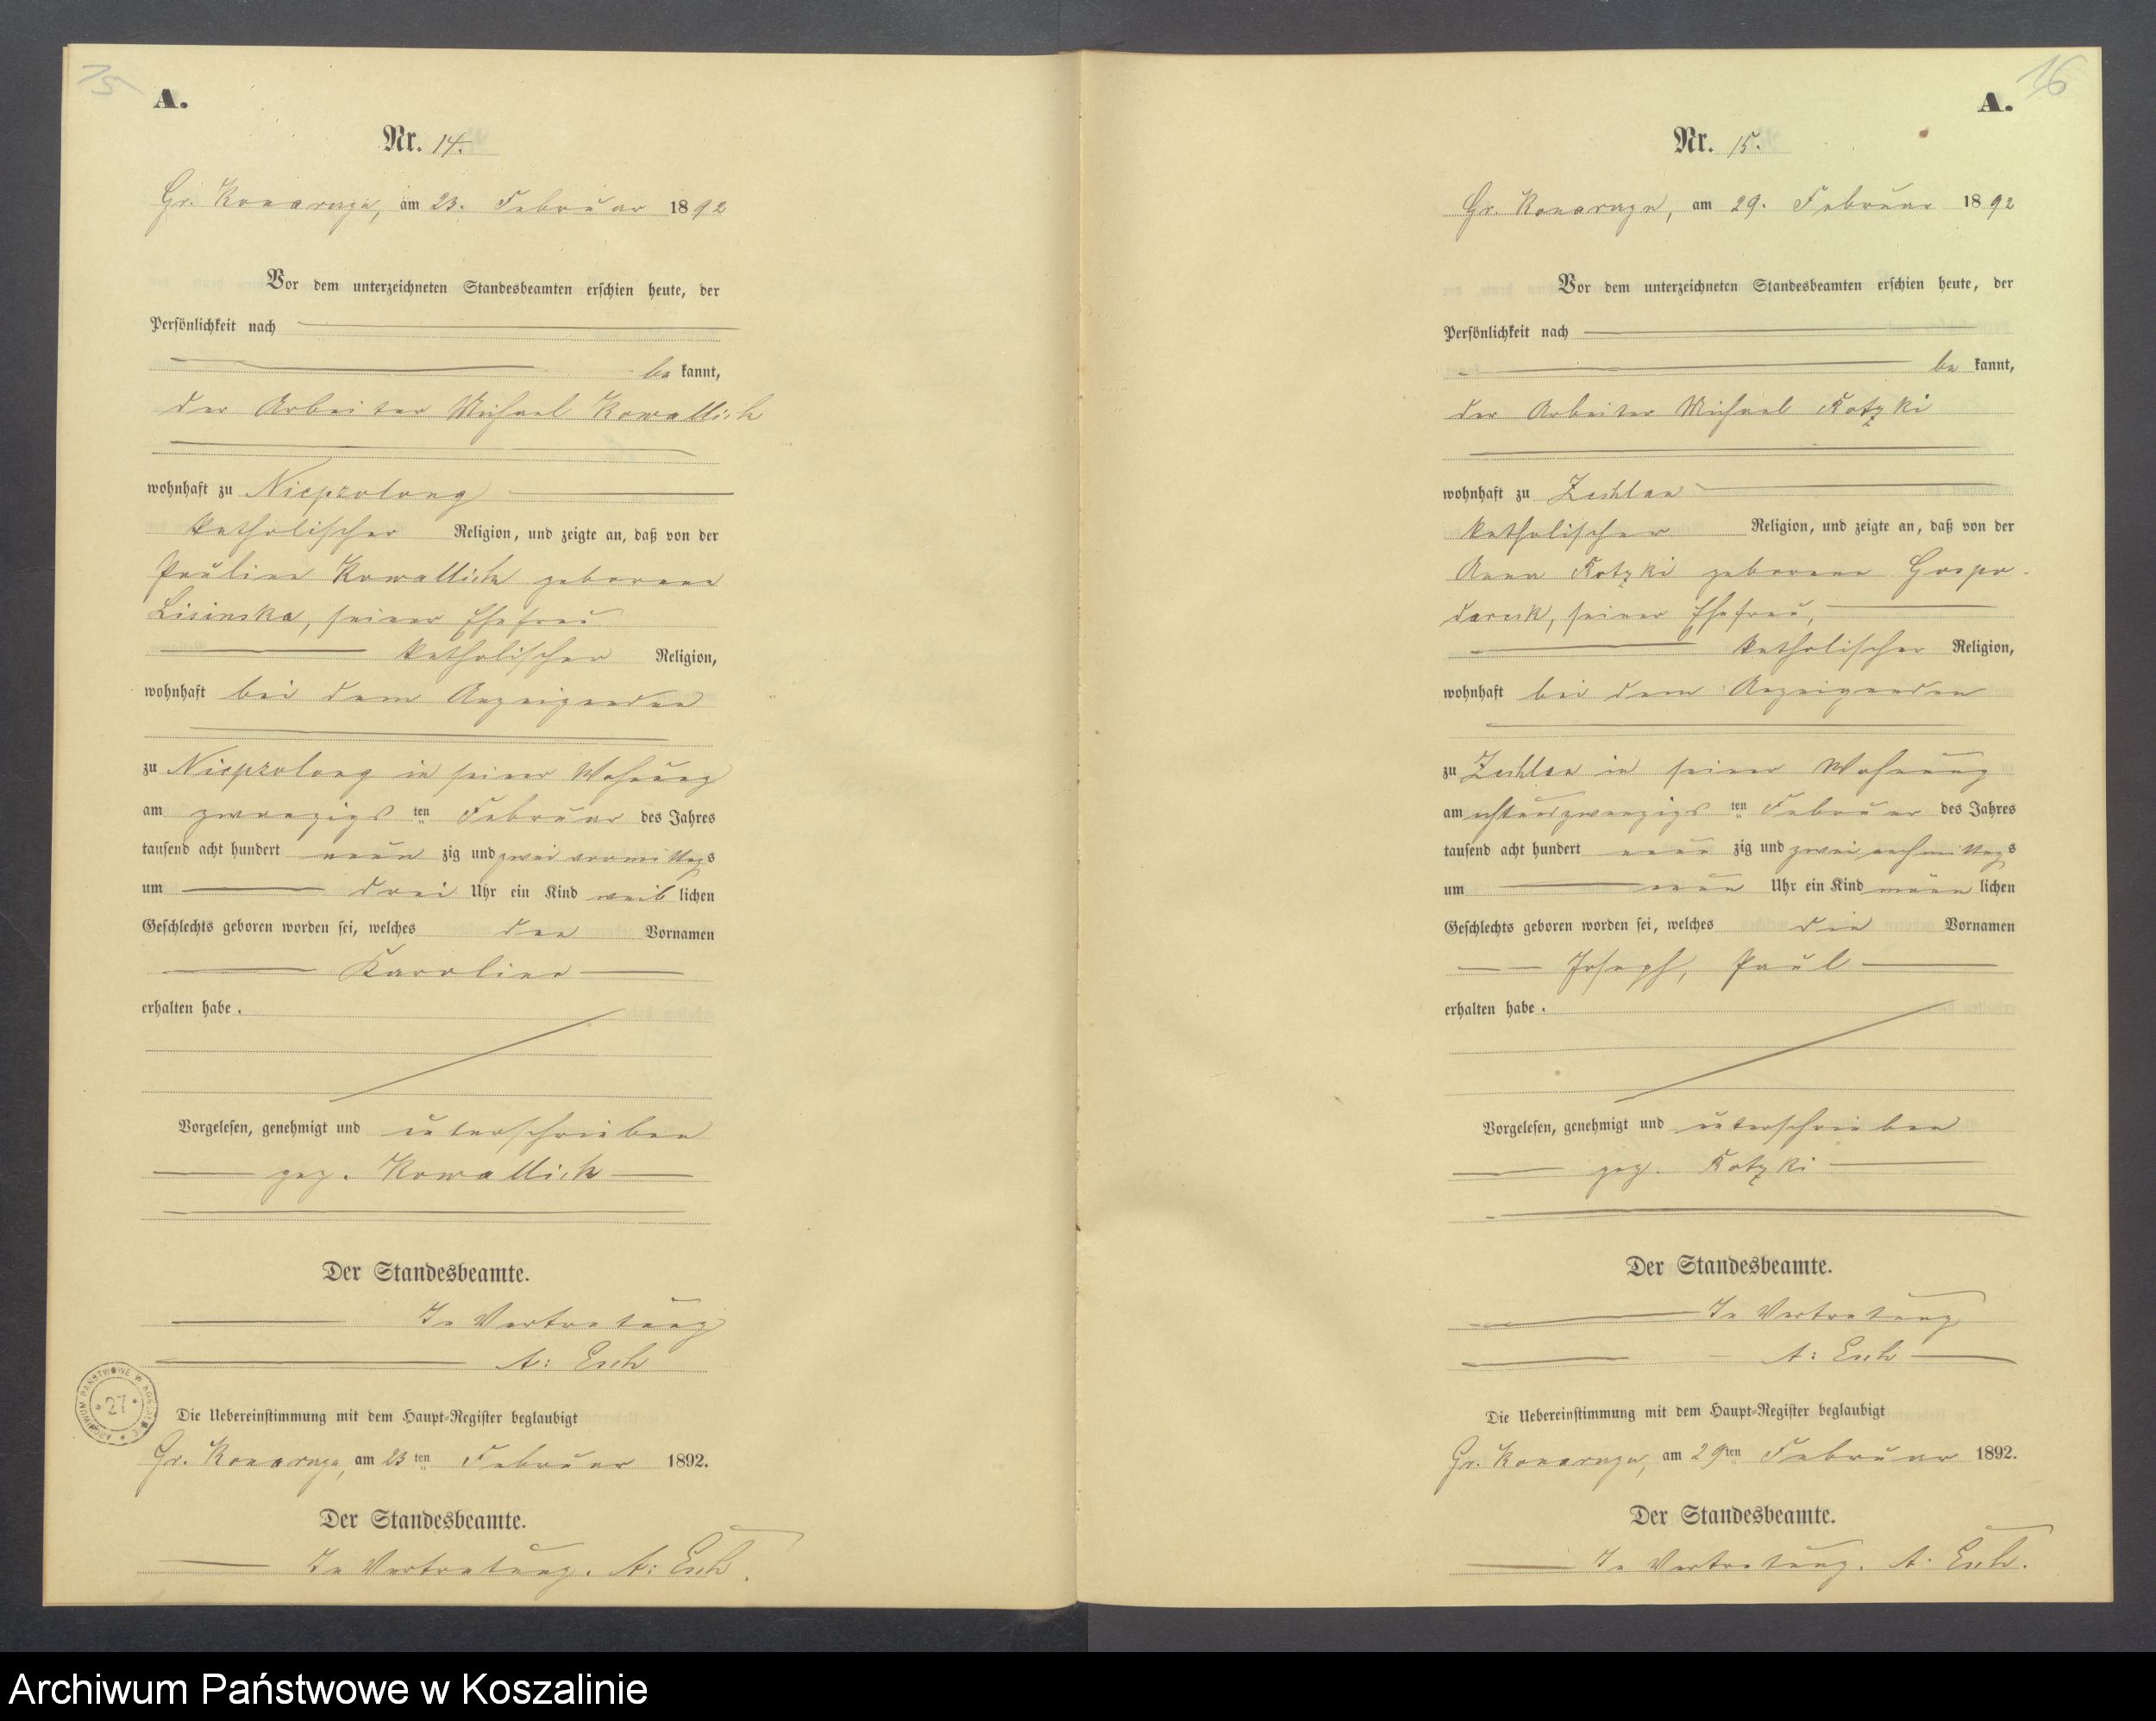 75
A.
Nr. 14.
Gr. Konarczyn, am 23. Februar 1892
Vor dem unterzeichneten Standesbeamten erschien heute, der
Persönlichkeit nach
be kannt,
der Arbeiter Michael Kowallich
wohnhaft zu Niepzolong
katholischer Religion, und zeigte an, daß von der
Pauline Kowallich geborene
Lisinska, seiner Ehefrau
katholischer Religion,
wohnhaft bei dem Anzeigenden
zu Niepzolong in seiner Wohnung
am zwanzigs ten Februar des Jahres
tausend acht hundert neun zig und zwei vormittags
um drei Uhr ein Kind weib lichen
Geschlechts geboren worden sei, welches den Vornamen
Karoline
erhalten habe.
Vorgelesen, genehmigt und unterschrieben
gez. Kowallich
Der Standesbeamte.
In Vertretung
A: Esch
ARCHIWUM PAŃSTWOWE W KOSZALINIE * 27 *
Die Uebereinstimmung mit dem Haupt-Register beglaubigt
Gr. Konarczyn, am 23 ten Februar 1892.
Der Standesbeamte.
In Vertretung. A: Esch.
16
A.
Nr. 15.
Gr. Konarczyn, am 29. Februar 1892
Vor dem unterzeichneten Standesbeamten erschien heute, der
Persönlichkeit nach
be kannt,
der Arbeiter Michael Kotzki
wohnhaft zu Zechlau
katholischer Religion, und zeigte an, daß von der
Anna Kotzki geborene Gospo-
darek, seiner Ehefrau,
katholischer Religion,
wohnhaft bei dem Anzeigenden
zu Zechlau in seiner Wohnung
am achtundzwanzigs ten Februar des Jahres
tausend acht hundert neun zig und zwei nachmittags
um neun Uhr ein Kind männ lichen
Geschlechts geboren worden sei, welches die Vornamen
Joseph, Paul
erhalten habe.
Vorgelesen, genehmigt und unterschrieben
gez. Kotzki
Der Standesbeamte.
In Vertretung
A: Esch
Die Uebereinstimmung mit dem Haupt-Register beglaubigt
Gr. Konarczyn, am 29 ten Februar 1892.
Der Standesbeamte.
In Vertretung. A: Esch.
Archiwum Państwowe w Koszalinie